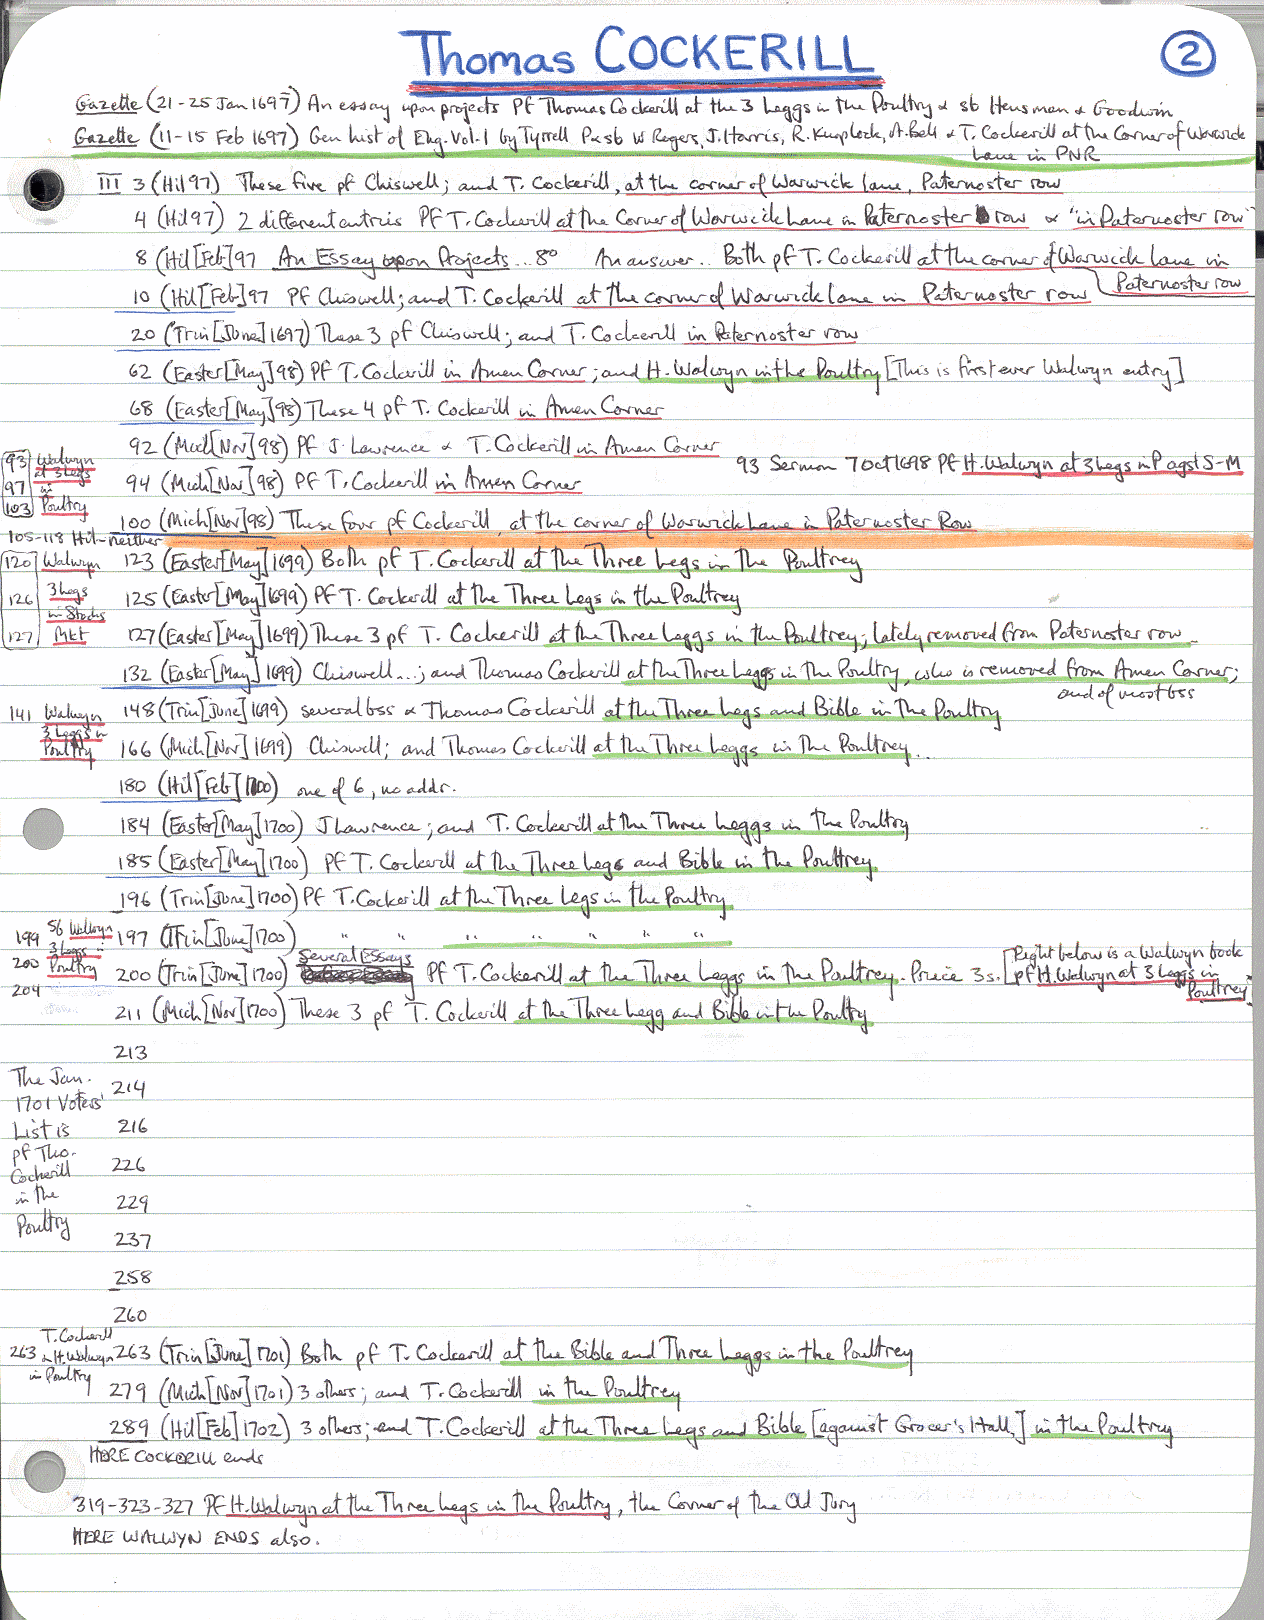 Thomas COCKERILL
2
Gazette (21-25 Jan 1697) An essay upon projects Pf Thomas Cockerill at the 3 Leggs in the Poultry & sb Hensman & Goodwin
Gazette (11-15 Feb 1697) Gen hist of Eng. Vol. 1 by Tyrrell P & sb W Rogers, J. Harris, R. Knaplock, A. Bell & T. Cockerill at the Corner of Warwick
Lane in PNR
III 3 (Hil 97) These five pf Chiswell; and T. Cockerill, at the corner of Warwick lane, Paternoster row
4 (Hil 97) 2 different entries Pf T. Cockerill at the Corner of Warwick Lane in Paternoster row & "in Paternoster row"
8 (Hil [Feb] 97 An Essay upon Projects... 8° An answer.. Both pf T. Cockerill at the corner of Warwick Lane in
Paternoster row
10 (Hil [Feb] 97 Pf Chiswell; and T. Cockerill at the corner of Warwick lane in Paternoster row
20 (Trin [June] 1697) These 3 pf Chiswell; and T. Cockerill in Paternoster row
62 (Easter [May] 98) Pf T. Cockerill in Amen Corner; and H. Walwyn in the Poultry [This is first ever Walwyn entry]
68 (Easter [May] 98) These 4 pf T. Cockerill in Amen Corner
92 (Mich [Nov] 98) Pf J. Lawrence & T. Cockerill in Amen Corner
93 Walwyn
at 3 Legs
97 in
103 Poultry
93 Sermon 7 Oct 1698 Pf H. Walwyn at 3 Legs in P agst S-M
94 (Mich [Nov] 98) Pf T. Cockerill in Amen Corner
100 (Mich [Nov] 98) These four pf Cockerill, at the corner of Warwick Lane in Paternoster Row
105-118 Hil-neither
120 Walwyn
126 3 Legs
in Stocks
127 Mkt
123 (Easter [May] 1699) Both pf T. Cockerill at the Three Legs in the Poultrey
125 (Easter [May] 1699) Pf T. Cockerill at the Three Legs in the Poultrey
127 (Easter [May] 1699) These 3 pf T. Cockerill at the Three Leggs in the Poultrey, lately removed from Paternoster row
132 (Easter [May] 1699) Chiswell...; and Thomas Cockerill at the Three Leggs in the Poultry, who is removed from Amen Corner;
and of most bss
141 Walwyn
3 Leggs in
Poultry
148 (Trin [June] 1699) several bss & Thomas Cockerill at the Three Legs and Bible in the Poultry
166 (Mich [Nov] 1699) Chiswell; and Thomas Cockerill at the Three Leggs in the Poultry...
180 (Hil [Feb] 1700) one of 6, no addr.
184 (Easter [May] 1700) J Lawrence; and T. Cockerill at the Three Leggs in the Poultry
185 (Easter [May] 1700) Pf T. Cockerill at the Three Legs and Bible in the Poultrey
196 (Trin [June] 1700) Pf T. Cockerill at the Three Legs in the Poultry
199 Walwyn
3 Leggs in
200 Poultry
204
197 (Trin [June] 1700) " " " " " " "
200 (Trin [June] 1700) Several Essays Pf T. Cockerill at the Three Leggs in the Poultrey. Price 3s.
[Right below is a Walwyn book
pf H. Walwyn at 3 Leggs in
Poultrey]
211 (Mich [Nov] 1700) These 3 pf T. Cockerill at the Three Legg and Bible in the Poultry
213
214
216
226
229
237
258
260
The Jan.
1701 Voters'
List is
pf Tho.
Cockerill
in the
Poultry
T. Cockerill
263 & H. Walwyn
in Poultry
263 (Trin [June] 1701) Both pf T. Cockerill at the Bible and Three Leggs in the Poultrey
279 (Mich [Nov] 1701) 3 others; and T. Cockerill in the Poultrey
289 (Hil [Feb] 1702) 3 others; and T. Cockerill at the Three Legs and Bible [against Grocer's Hall,] in the Poultry
HERE COCKERILL ends
319-323-327 Pf H. Walwyn at the Three Legs in the Poultry, the Corner of the Old Jury
HERE WALWYN ENDS also.